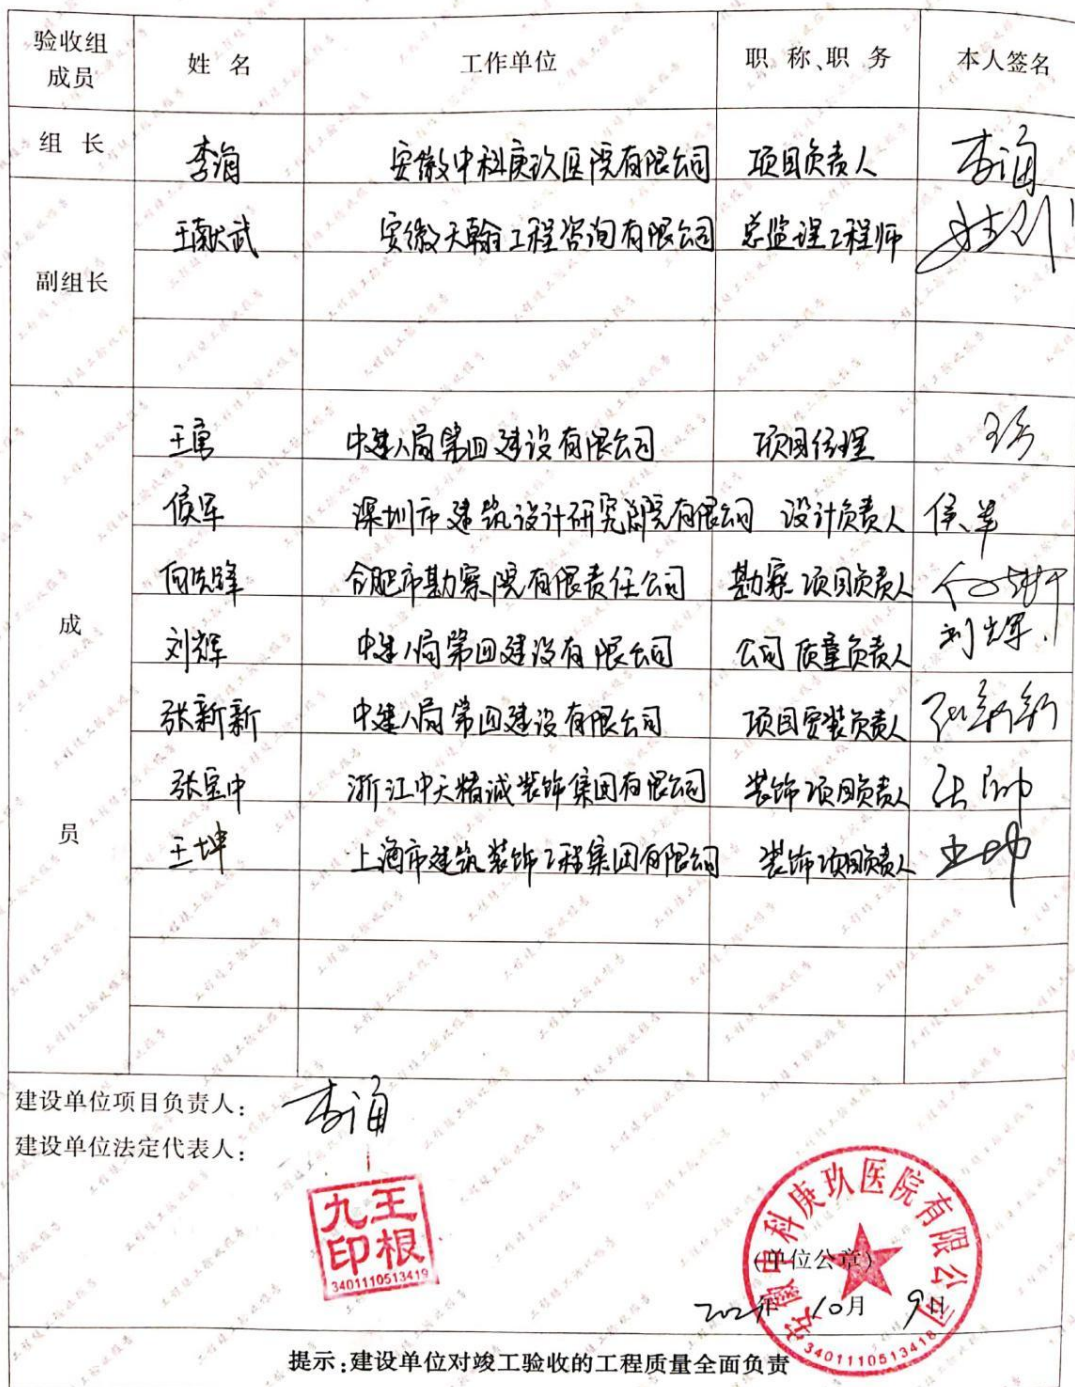 验收组成员 姓 名 工作单位 职 称、职 务 本人签名
组 长 李海 安徽中科庚玖医院有限公司 项目负责人 李海
副组长 王献武 安徽天翰工程咨询有限公司 总监理工程师
王勇 中建八局第四建设有限公司 项目经理 王勇
侯军 深圳市建筑设计研究总院有限公司 设计负责人 侯军
何先锋 合肥市勘察院有限责任公司 勘察项目负责人
成员 刘辉 中建八局第四建设有限公司 公司质量负责人 刘辉
张新新 中建八局第四建设有限公司 项目安装负责人 张新新
张宝中 浙江中天精诚装饰集团有限公司 装饰项目负责人
王坤 上海市建筑装饰工程集团有限公司 装饰项目负责人 王坤
建设单位项目负责人: 李海
建设单位法定代表人:
九王
印根
3401110513419
安徽中科庚玖医院有限公司
(单位公章)
年10月9日
3401110513418
提示:建设单位对竣工验收的工程质量全面负责
工程竣工验收报告